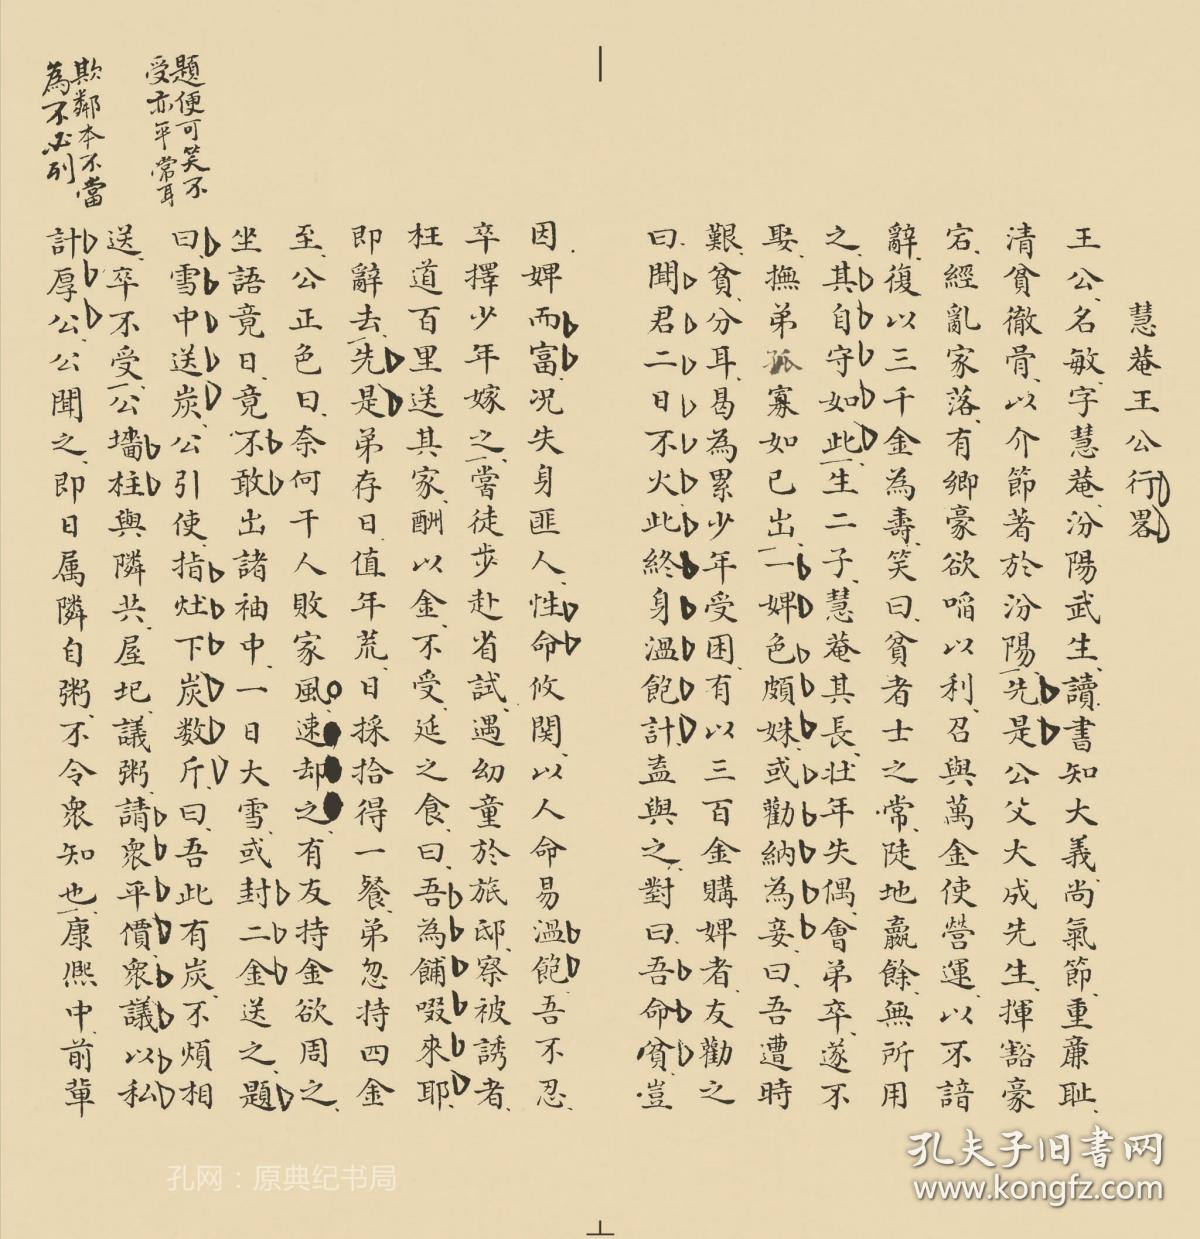 慧菴王公行畧
王公名敏字慧菴汾陽武生讀書知大義尚氣節重廉耻
清貧徹骨以介節著於汾陽先是公父大成先生揮豁豪
宕經亂家落有鄉豪欲啗以利召與萬金使營運以不諳
辭復以三千金為壽笑曰貧者士之常陡地贏餘無所用
之其自守如此生二子慧菴其長壯年失偶會弟卒遂不
娶撫弟孤寡如已出一婢色頗姝或勸納為妾曰吾遭時
艱貧分耳曷為累少年受困有以三百金購婢者友勸之
曰聞君二日不火此終身溫飽計盍與之對曰吾命貧豈
因婢而富况失身匪人性命攸関以人命易溫飽吾不忍
卒擇少年嫁之嘗徒步赴省試遇幼童於旅邸察被誘者
枉道百里送其家酬以金不受延之食曰吾為餔啜來耶
即辭去先是弟存日值年荒日採拾得一餐弟忽持四金
至公正色曰奈何干人敗家風速却之有友持金欲周之
坐語竟日竟不敢出諸袖中一日大雪或封二金送之題
曰雪中送炭公引使指灶下炭数斤曰吾此有炭不煩相
送卒不受公墻柱與隣共屋圮議粥請衆平價衆議以私
計厚公公聞之即日属隣自粥不令衆知也康熙中前軰
題便可笑不
受亦平常耳
欺鄰本不當
為不必列
孔夫子旧书网
www.kongfz.com
孔网：原典纪书局